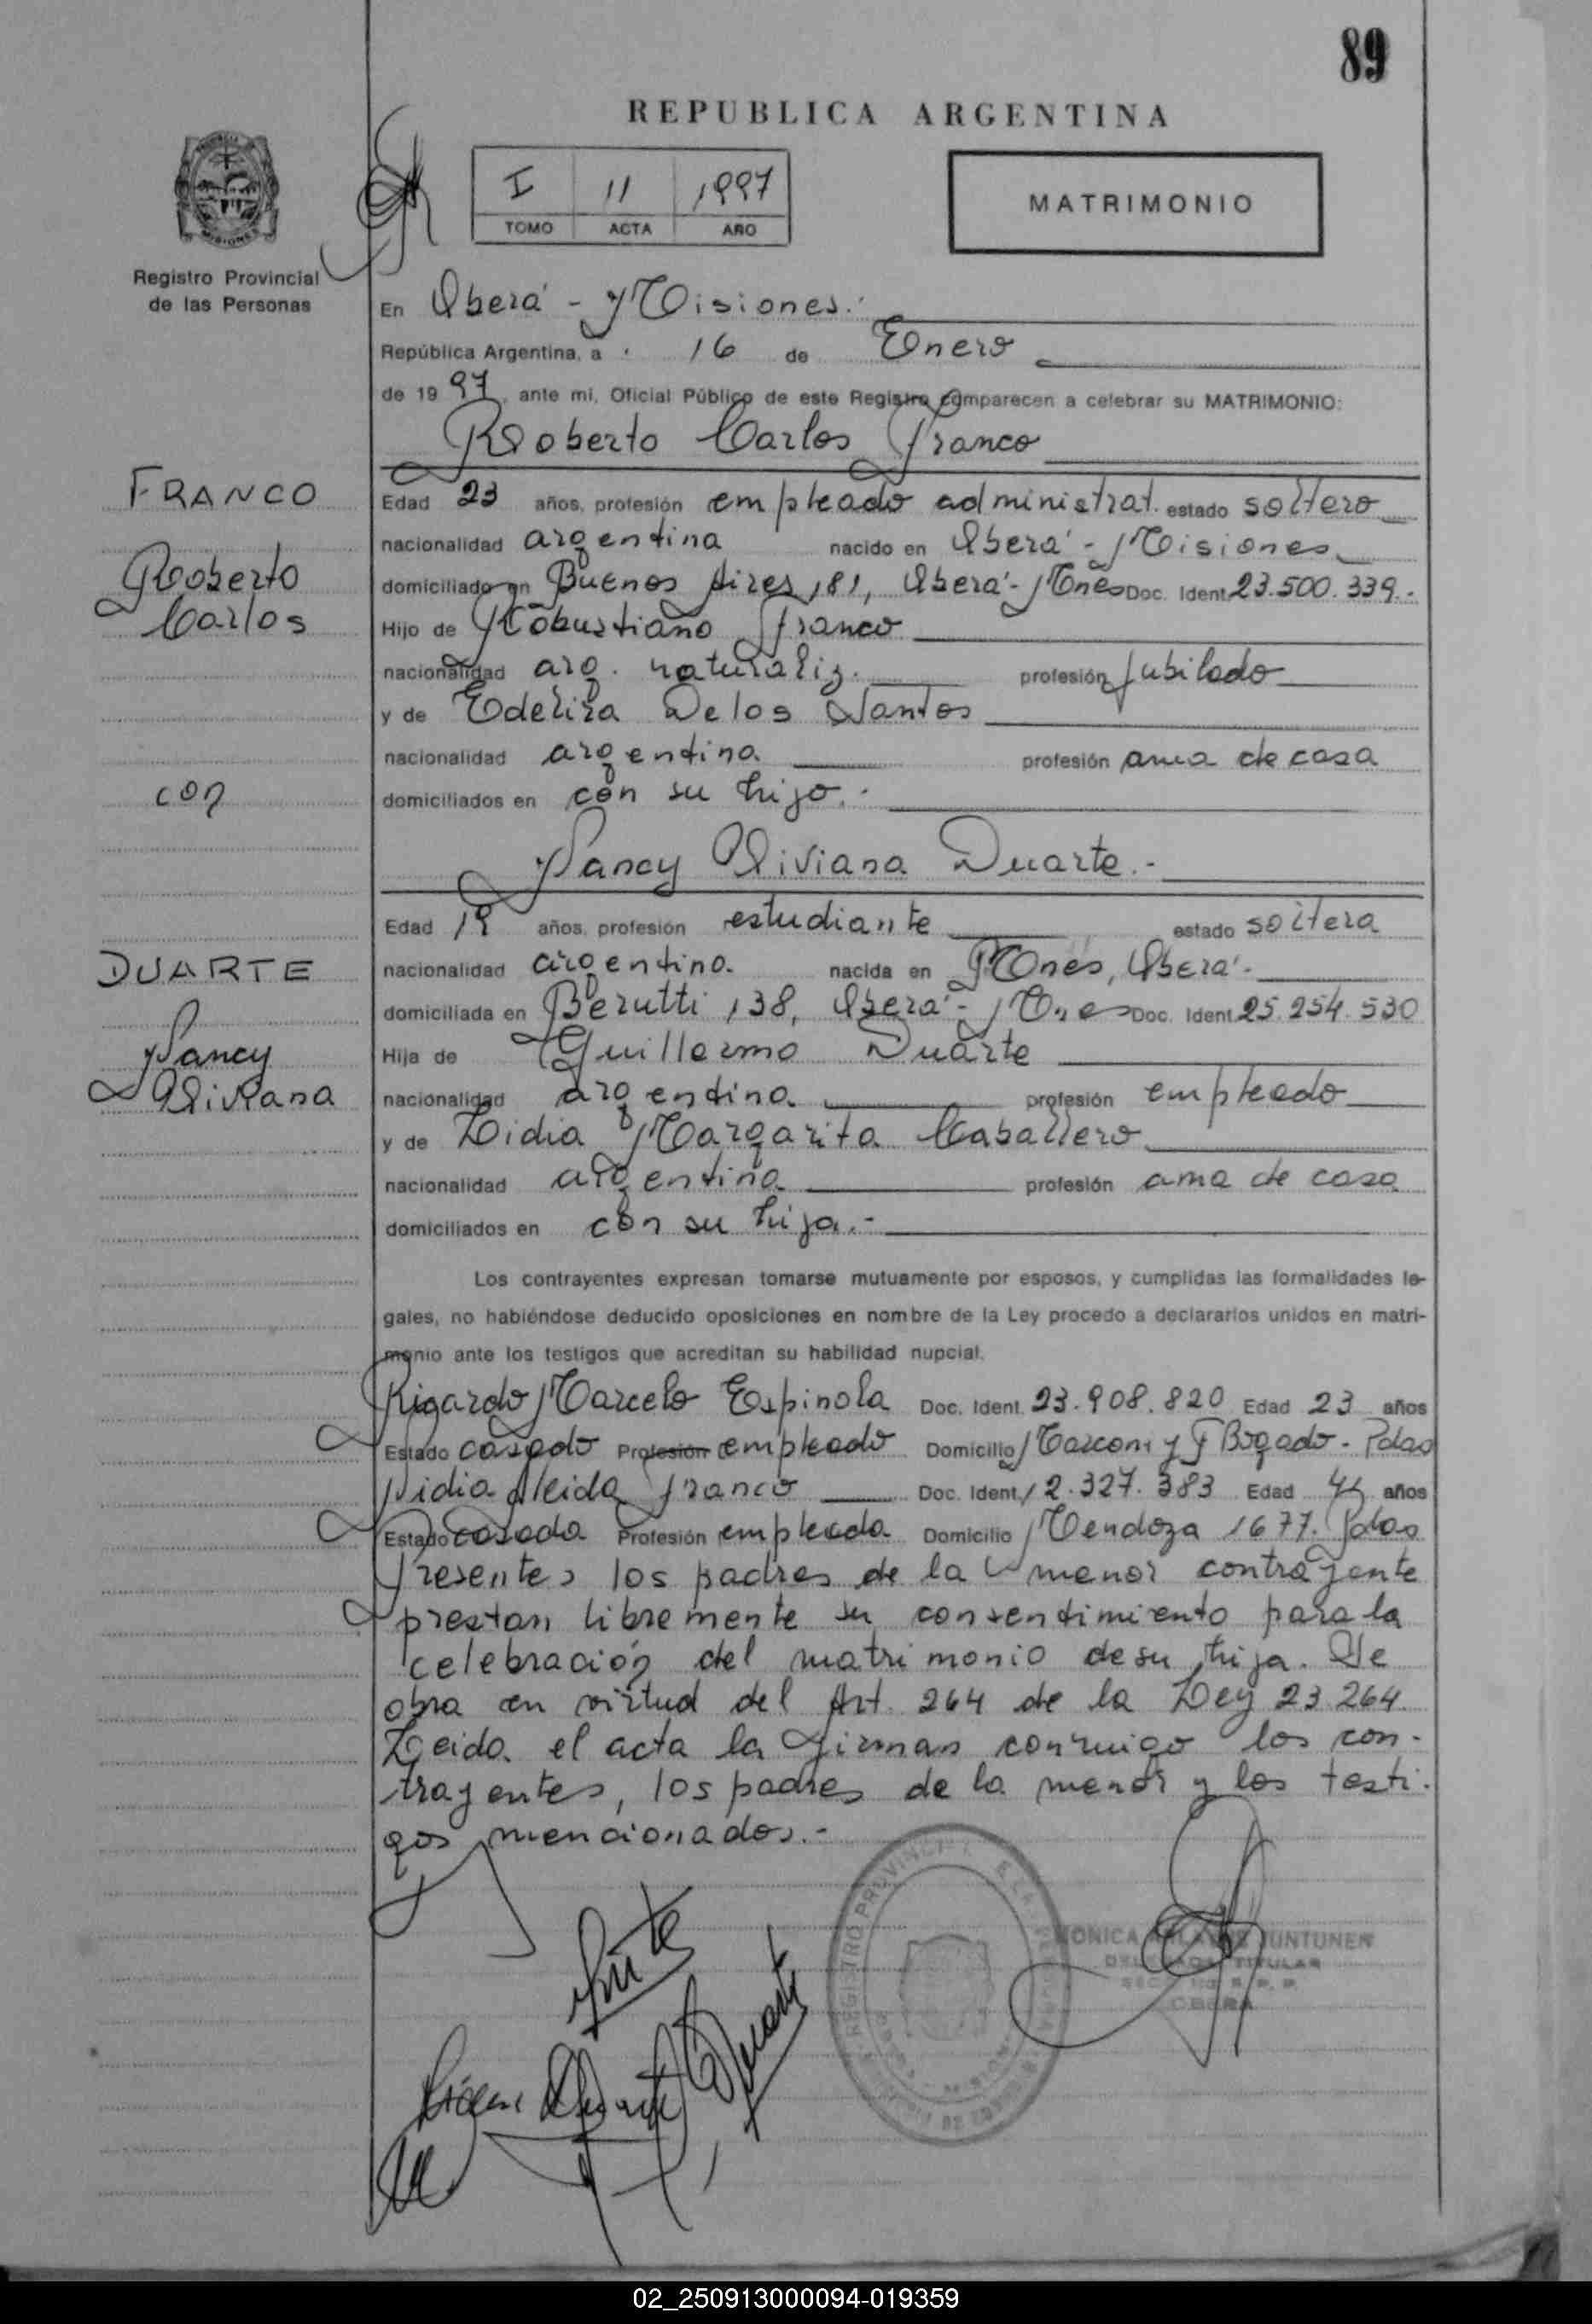 89
REPUBLICA ARGENTINA
I 11 1997
TOMO ACTA AÑO
MATRIMONIO
Registro Provincial
de las Personas
En Oberá - Misiones.
República Argentina, a 16 de Enero
de 1997, ante mi, Oficial Público de este Registro comparecen a celebrar su MATRIMONIO:
Roberto Carlos Franco
FRANCO
Roberto
Carlos
Edad 23 años, profesión empleado administrat. estado soltero
nacionalidad argentina nacido en Oberá - Misiones
domiciliado en Buenos Aires 181, Oberá - Mnes Doc. Ident. 23.500.339.-
Hijo de Robustiano Franco
nacionalidad arg. naturaliz. profesión jubilado
y de Edelira Delos Santos
nacionalidad argentina profesión ama de casa
domiciliados en con su hijo.-
con
Nancy Viviana Duarte.-
DUARTE
Nancy
Viviana
Edad 19 años, profesión estudiante estado soltera
nacionalidad argentina nacida en Mnes, Oberá.-
domiciliada en Berutti 138, Oberá - Mnes Doc. Ident. 25.254.530
Hija de Guillermo Duarte
nacionalidad argentina profesión empleado
y de Lidia Margarita Caballero
nacionalidad argentina profesión ama de casa
domiciliados en con su hija.-
Los contrayentes expresan tomarse mutuamente por esposos, y cumplidas las formalidades le-
gales, no habiéndose deducido oposiciones en nombre de la Ley procedo a declararlos unidos en matri-
monio ante los testigos que acreditan su habilidad nupcial.
Ricardo Marcelo Espinola Doc. Ident. 23.908.820 Edad 23 años
Estado casado Profesión empleado Domicilio Marconi y F Bogado - Pdas
Nidia Aleida Franco Doc. Ident. 12.327.383 Edad años
Estado casada Profesión empleada Domicilio Mendoza 1677. Pdas
Presentes los padres de la menor contrayente
prestan libremente su consentimiento para la
celebración del matrimonio de su hija. Se
obra en virtud del Art. 264 de la Ley 23.264
Leida el acta la firman conmigo los con-
trayentes, los padres de la menor y los testi-
gos mencionados.-
Duarte
Duarte
REGISTRO PROVINCIAL DE LAS
MONICA JUNTUNEN
DELEGADA TITULAR
OBERA
02_250913000094-019359